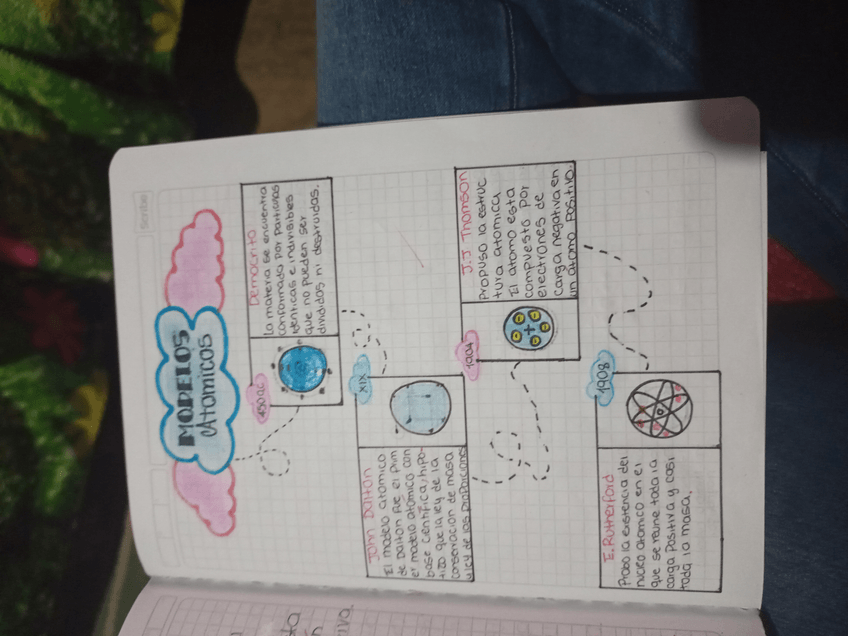 scribe
MODELOS
Atomicos
450 ac
Democrito
la materia se encuentra
conformada por particulas
identicas e indivisibles
que no pueden ser
divididos ni destruidas.
XIX
John Dalton
El modelo atomico
de Dalton fue el prim
er modelo atómico con
base cientifica, hipo-
tizo que la ley de la
conservacion de masa
y ley de las proporciones
1904
J.J Thomson
Propuso la estruc
tura atomica
El atomo esta
compuesto por
electrones de
carga negativa en
un atomo positivo.
1908
E. Rutherford
Probo la existencia del
nucleo atomico en el
que se reune toda la
carga positiva y casi
toda la masa.